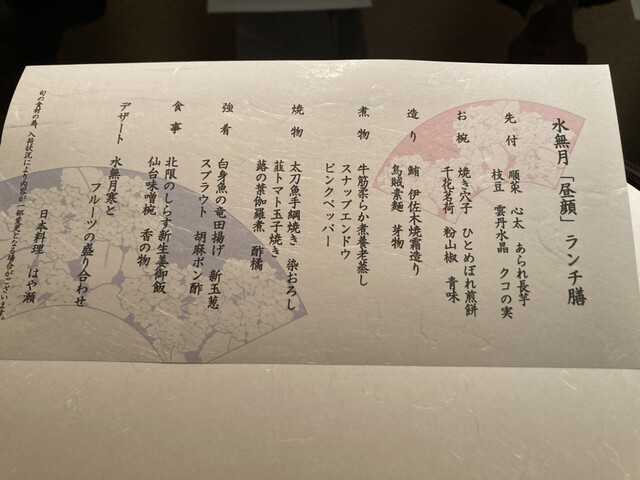 水無月「昼顔」ランチ膳
先付 順菜 心太 あられ長芋
枝豆 雲丹水晶 クコの実
お椀 焼き穴子 ひとめぼれ煎餅
千花茗荷 粉山椒 青味
造り 鮪 伊佐木焼霜造り
烏賊素麺 芽物
煮物 牛筋柔らか煮養老蒸し
スナップエンドウ
ピンクペッパー
焼物 太刀魚手綱焼き 染おろし
韮トマト玉子焼き
蕗の葉伽羅煮 酢橘
強肴 白身魚の竜田揚げ 新玉葱
スプラウト 胡麻ポン酢
食事 北限のしらす新生姜御飯
仙台味噌椀 香の物
デザート 水無月寒と
フルーツの盛り合わせ
日本料理 はや瀬
旬の食材の為、入荷状況により内容が一部変更となる場合がございます。